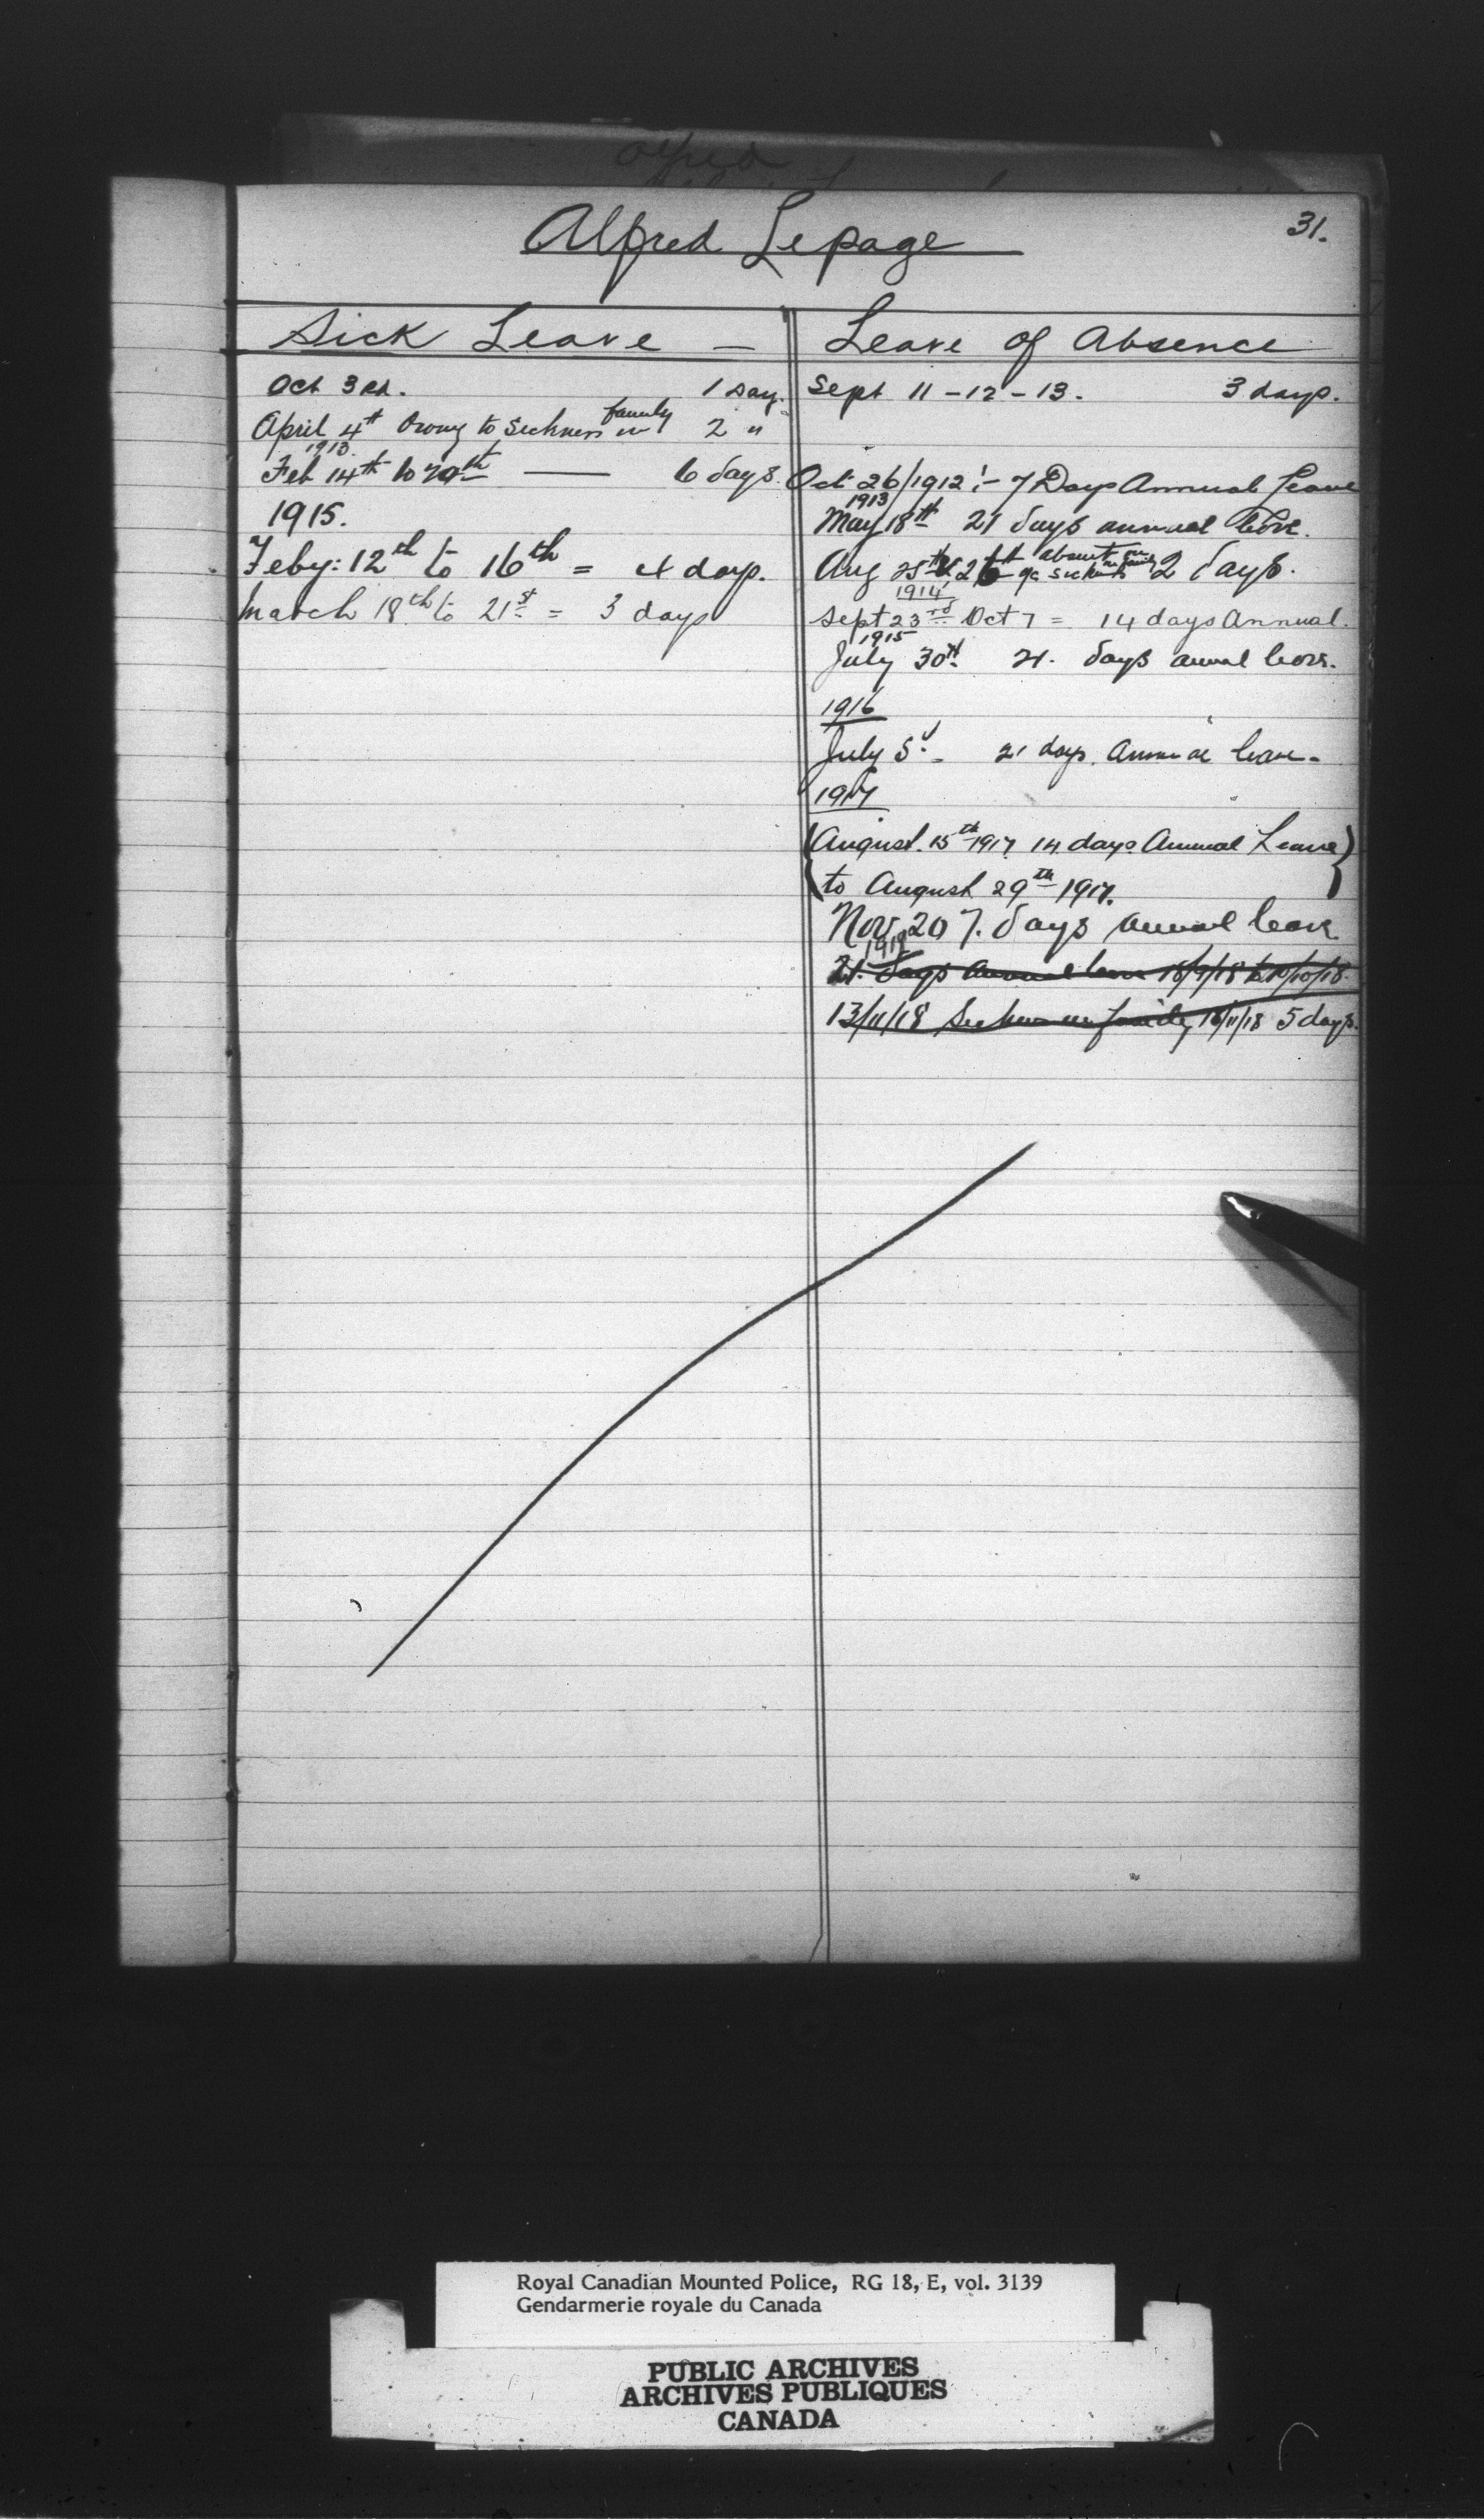 Alfred
Alfred Lepage
31.
Sick Leave —
Oct 3rd. 1 Day.
family
April 4th Owing to Sickness in 2 "
1913.
Feb 14th to 20th — 6 days.
1915.
Feby: 12th to 16th = 4 days.
March 18th to 21st = 3 days
Leave of Absence
Sept 11-12-13. 3 days.
Oct 26/1912 :- 7 Days Annual Leave
1913
May 18th 21 days annual leave.
absent on
Aug 25th & 26th a/c sickness in family 2 days.
1914
Sept 23rd Oct 7 = 14 days Annual.
1915
July 30th. 21. days annual leave.
1916
July 5th - 21 days. Annual leave -
1917
August. 15th 1917 14 days Annual Leave
to August 29th 1917.
Nov 20 7. days annual leave
1918
21. Days annual leave 18/9/18 to 10/18.
13/11/18 Sickness in family 18/11/18 5 days.
Royal Canadian Mounted Police, RG 18, E, vol. 3139
Gendarmerie royale du Canada
PUBLIC ARCHIVES
ARCHIVES PUBLIQUES
CANADA